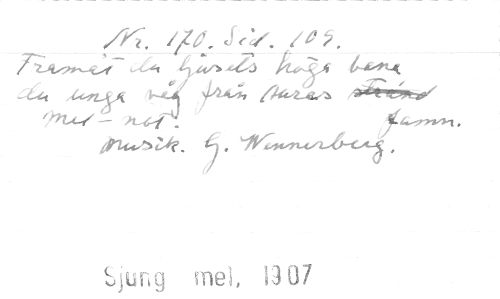 Nr. 170. Sid. 109.
Framåt du ljusets höga bana
du unga våg från Auras strand
med not. famn.
Musik. G. Wennerberg.
Sjung mel, 1907